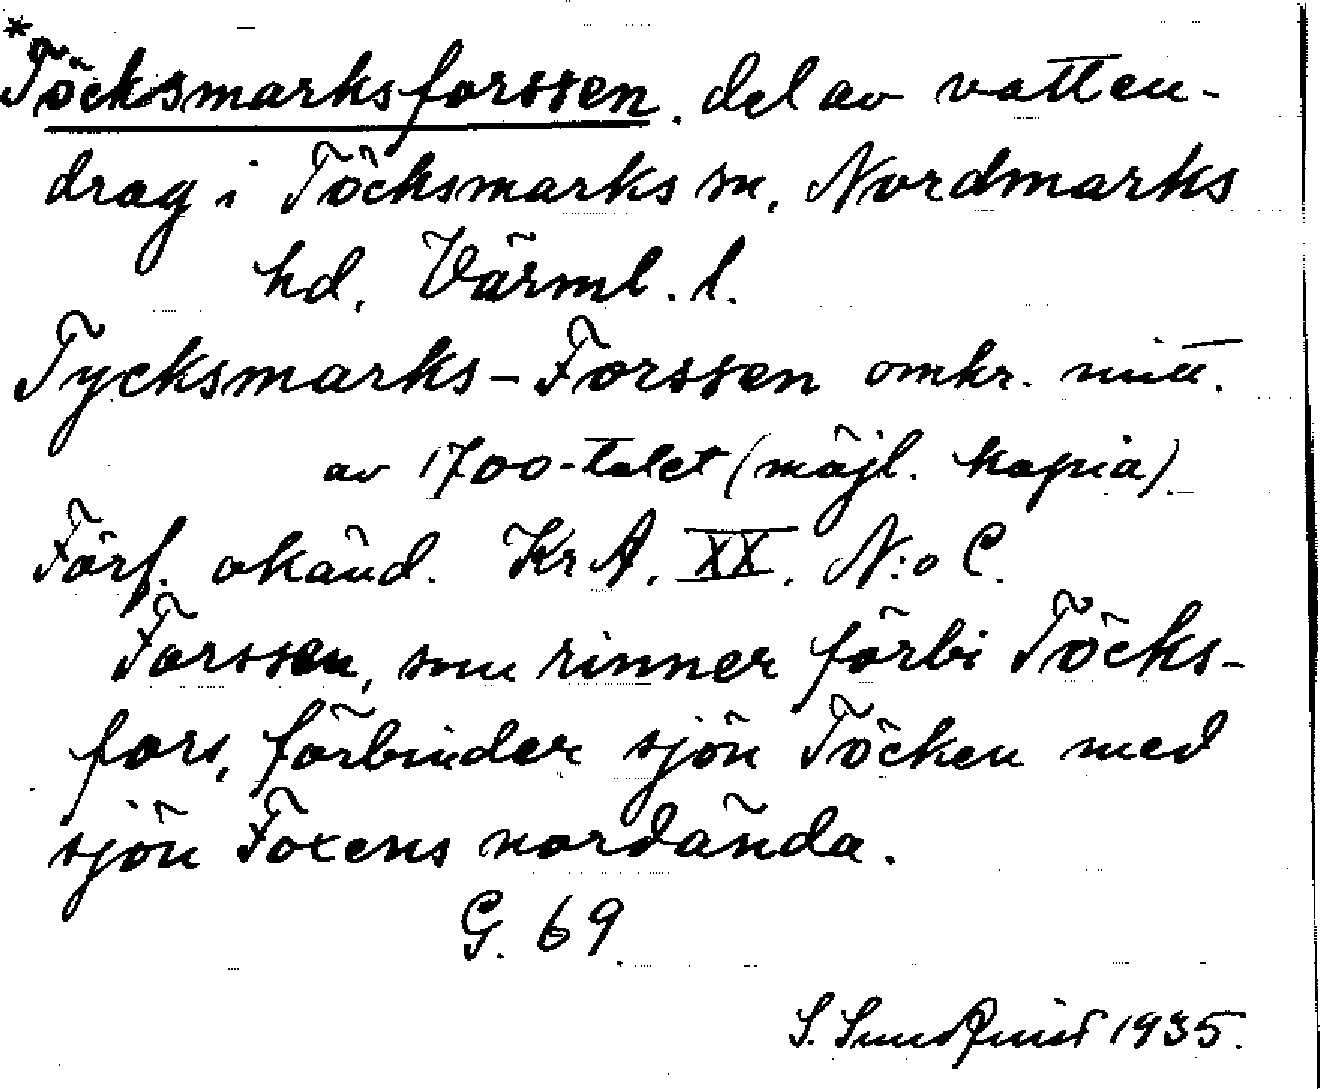 *Töcksmarksforssen, del av vatten-
drag i Töcksmarks sn, Nordmarks
hd, Värml. l.
Tycksmarks-Forssen omkr. mitt.
av 1700-talet (möjl. kopia).
Förf. okänd. KrA. XX. N:o C.
Forssen, som rinner förbi Töcks-
fors, förbinder sjön Töcken med
sjön Foxens nordända.
G. 69.
S. Sundquist 1935.